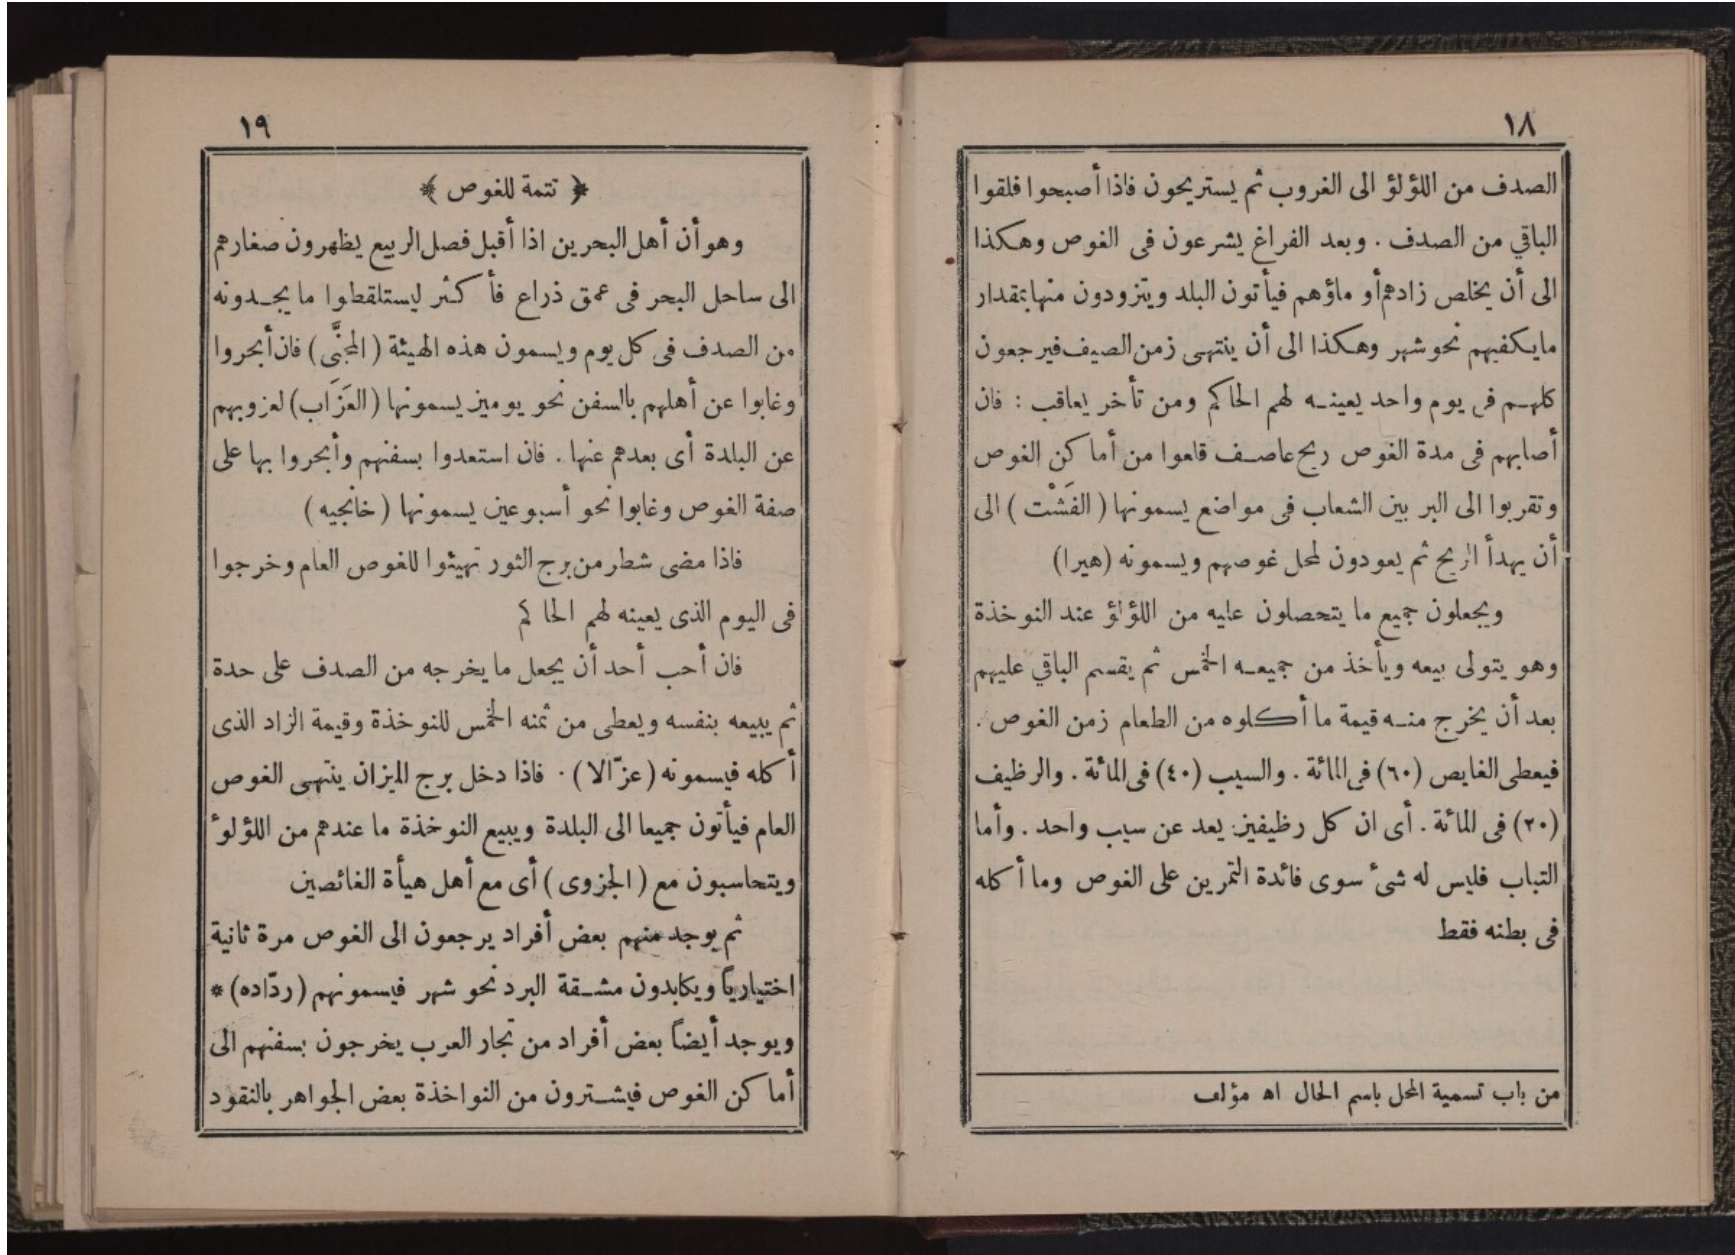 ١٨
الصدف من اللؤلؤ الى الغروب ثم يستريحون فاذا أصبحوا فلقوا
الباقي من الصدف . وبعد الفراغ يشرعون فى الغوص وهكذا
الى أن يخلص زادهم أو ماؤهم فيأتون البلد ويتزودون منها بمقدار
مايكفيهم نحو شهر وهكذا الى أن ينتهى زمن الصيف فيرجعون
كلهم فى يوم واحد يعينه لهم الحاكم ومن تأخر يعاقب : فان
أصابهم فى مدة الغوص ريح عاصف قلعوا من أماكن الغوص
وتقربوا الى البر بين الشعاب فى مواضع يسمونها ( الفَشْت ) الى
أن يهدأ الريح ثم يعودون لمحل غوصهم ويسمونه (هيرا)
ويجعلون جميع ما يتحصلون عليه من اللؤلؤ عند النوخذة
وهو يتولى بيعه ويأخذ من جميعه الخمس ثم يقسم الباقي عليهم
بعد أن يخرج منه قيمة ما أكلوه من الطعام زمن الغوص .
فيعطى الغايص (٦٠) فى المائة . والسيب (٤٠) فى المائة . والرظيف
(٢٠) فى المائة . أى ان كل رظيفين يعد عن سيب واحد . وأما
التباب فليس له شئ سوى فائدة التمرين على الغوص وما أكله
فى بطنه فقط
من باب تسمية المحل باسم الحال اه مؤلف
١٩
﴿ تتمة للغوص ﴾
وهو أن أهل البحرين اذا أقبل فصل الربيع يظهرون صغارهم
الى ساحل البحر فى عمق ذراع فأكثر ليستلقطوا ما يجدونه
من الصدف فى كل يوم ويسمون هذه الهيئة ( المجنَّى ) فان أبحروا
وغابوا عن أهلهم بالسفن نحو يومين يسمونها ( العَزَاب ) لعزوبهم
عن البلدة أى بعدهم عنها . فان استعدوا بسفنهم وأبحروا بها على
صفة الغوص وغابوا نحو أسبوعين يسمونها ( خانجيه )
فاذا مضى شطر من برج الثور تهيئوا للغوص العام وخرجوا
فى اليوم الذى يعينه لهم الحاكم
فان أحب أحد أن يجعل ما يخرجه من الصدف على حدة
ثم يبيعه بنفسه ويعطى من ثمنه الخمس للنوخذة وقيمة الزاد الذى
أكله فيسمونه ( عزّالا ) . فاذا دخل برج الميزان ينتهى الغوص
العام فيأتون جميعا الى البلدة ويبيع النوخذة ما عندهم من اللؤلوء
ويتحاسبون مع ( الجزوى ) أى مع أهل هيأة الغائصين
ثم يوجد منهم بعض أفراد يرجعون الى الغوص مرة ثانية
اختيارياً ويكابدون مشقة البرد نحو شهر فيسمونهم ( ردّاده ) *
ويوجد أيضاً بعض أفراد من تجار العرب يخرجون بسفنهم الى
أماكن الغوص فيشترون من النواخذة بعض الجواهر بالنقود